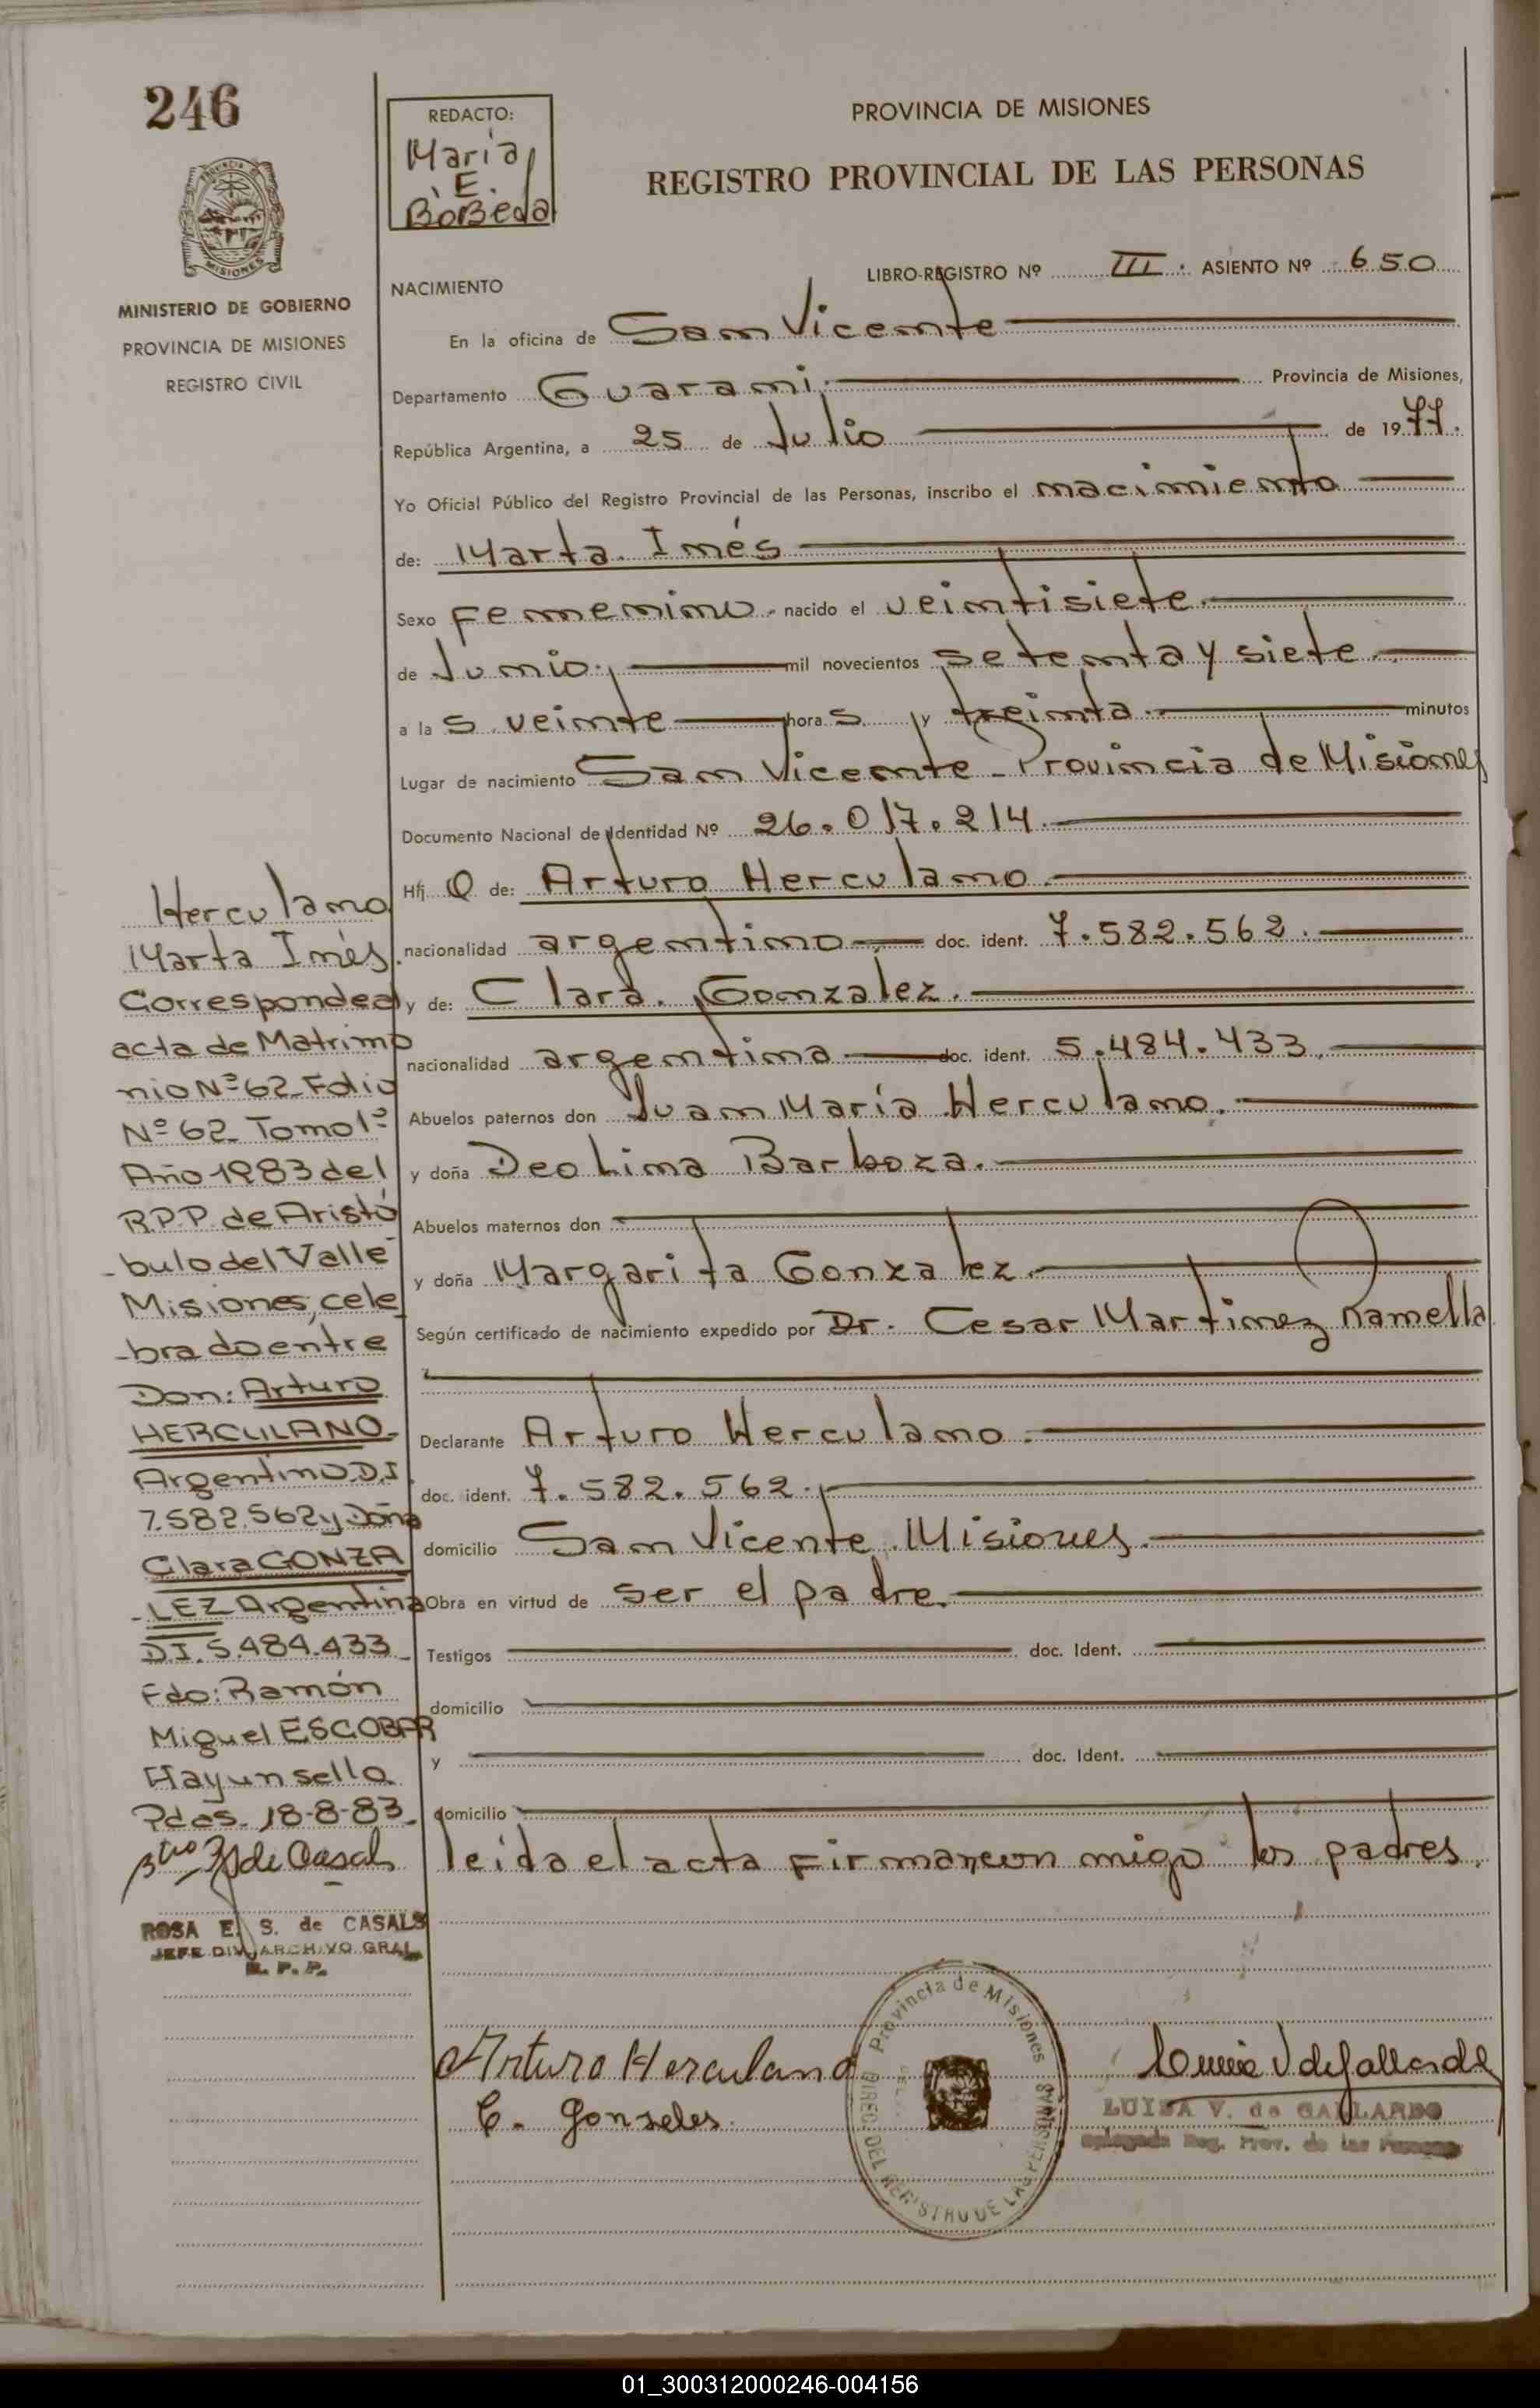 246
PROVINCIA
MISIONES
MINISTERIO DE GOBIERNO
PROVINCIA DE MISIONES
REGISTRO CIVIL
REDACTO:
María
E.
BoBeda
PROVINCIA DE MISIONES
REGISTRO PROVINCIAL DE LAS PERSONAS
LIBRO-REGISTRO Nº III. ASIENTO Nº 650
NACIMIENTO
En la oficina de San Vicente
Departamento Guarani. Provincia de Misiones,
República Argentina, a 25 de Julio de 1977.
Yo Oficial Público del Registro Provincial de las Personas, inscribo el nacimiento
de: Marta Inés
Sexo Femenino. nacido el veintisiete.
de Junio. mil novecientos setenta y siete.
a la s veinte hora s y treinta. minutos
Lugar de nacimiento San Vicente - Provincia de Misiones
Documento Nacional de Identidad Nº 26.017.214.
Hij a de: Arturo Herculano.
nacionalidad argentino doc. ident. 7.582.562.
y de: Clara Gonzalez.
nacionalidad argentina doc. ident. 5.484.433.
Abuelos paternos don Juan María Herculano.
y doña Deolina Barboza.
Abuelos maternos don
y doña Margarita Gonzalez.
Según certificado de nacimiento expedido por Dr. Cesar Martinez Ramella
Declarante Arturo Herculano.
doc. ident. 7.582.562.
domicilio San Vicente Misiones.
Obra en virtud de ser el padre.
Testigos doc. Ident.
domicilio
y doc. Ident.
domicilio
leida el acta firman con migo los padres.
Herculano
Marta Inés.
Corresponde al
acta de Matrimo
nio Nº 62 Folio
Nº 62 Tomo 1º
Año 1983 del
R.P.P. de Aristó
-bulo del Valle
Misiones, cele
-brado entre
Don: Arturo
HERCULANO-
Argentino D.I.
7.582.562 y Doña
Clara GONZA
-LEZ Argentina
D.I. 5.484.433
Fdo: Ramón
Miguel ESCOBAR
Hay un sello
Pdas. 18-8-83
de Casals
ROSA E. S. de CASALS
JEFE DIV. ARCHIVO GRAL.
R. P. P.
Arturo Herculano
C. Gonseles
Provincia de Misiones
DIREC. DEL REGISTRO DE LAS PERSONAS
LUISA V. de GALLARDO
Delegada Reg. Prov. de las Personas
01_300312000246-004156